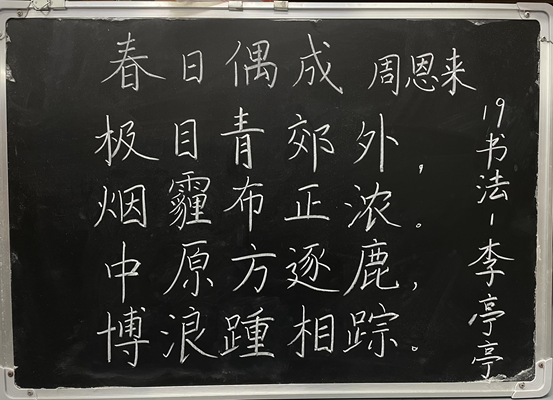 春日偶成 周恩来
极目青郊外，
烟霾布正浓。
中原方逐鹿，
博浪踵相踪。
19书法-李亭亭